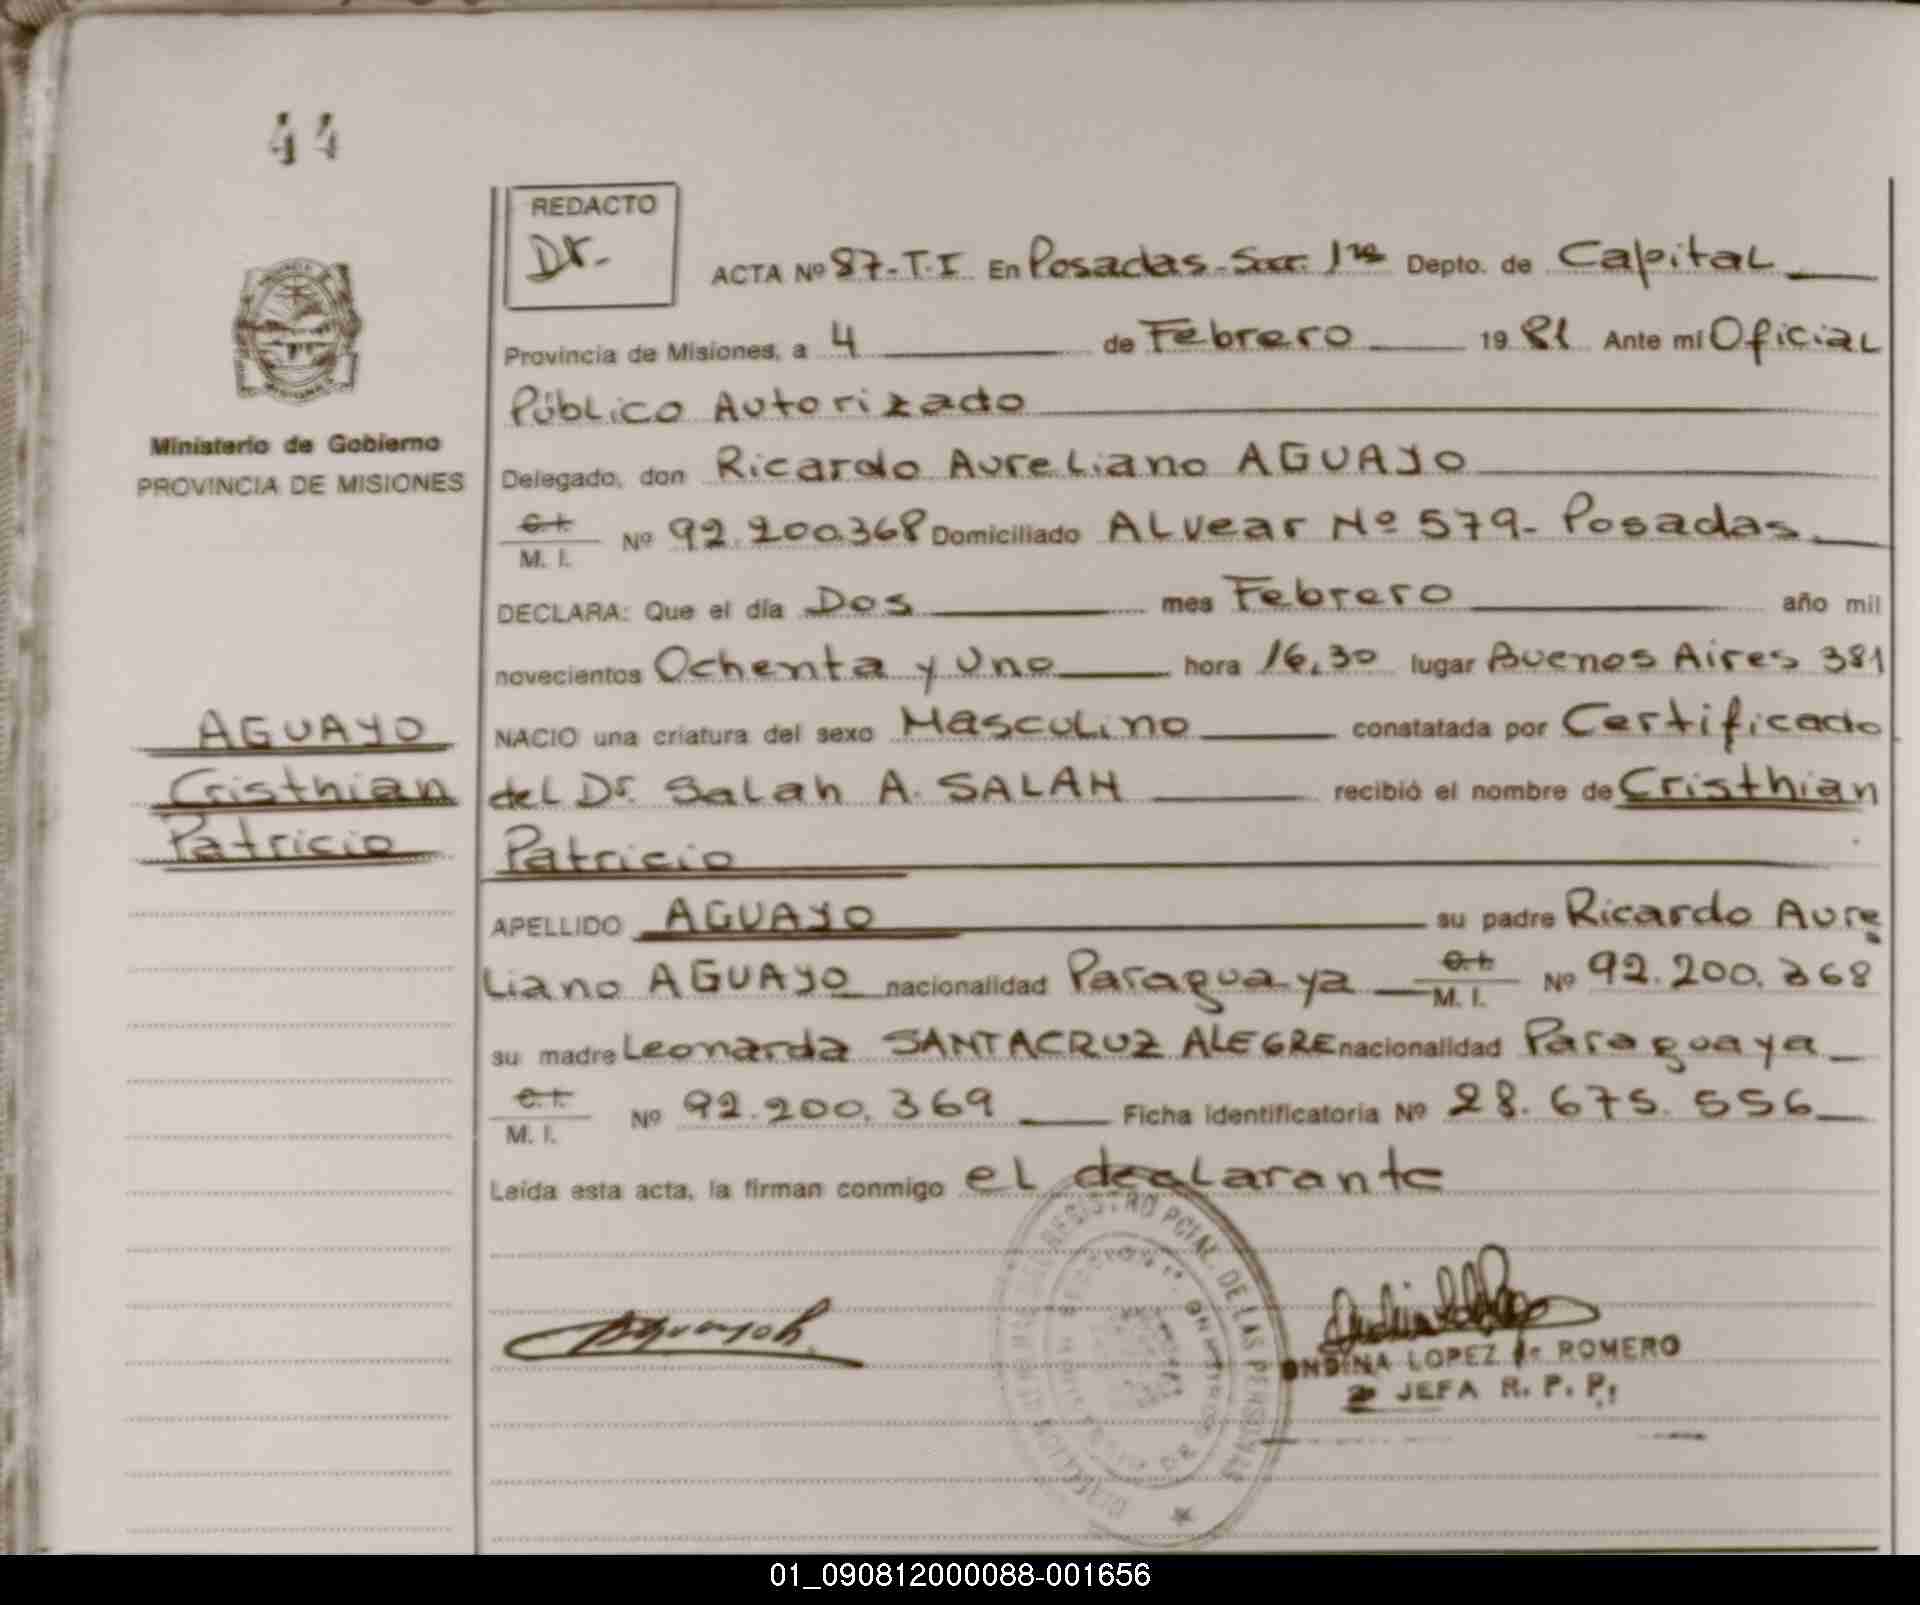 44
REDACTO
Dr.
ACTA Nº 87-T.I En Posadas-Secc. 1ra Depto. de Capital
Provincia de Misiones, a 4 de Febrero 1981 Ante mí Oficial
Público Autorizado
Ministerio de Gobierno
PROVINCIA DE MISIONES
Delegado, don Ricardo Aureliano AGUAYO
C.I.
M. I. Nº 92.200.368 Domiciliado Alvear Nº 579- Posadas
DECLARA: Que el día Dos mes Febrero año mil
novecientos Ochenta y Uno hora 16,30 lugar Buenos Aires 381
AGUAYO
Cristhian
Patricio
NACIO una criatura del sexo Masculino constatada por Certificado
del Dr. Salah A. SALAH recibió el nombre de Cristhian
Patricio
APELLIDO AGUAYO su padre Ricardo Aure
liano AGUAYO nacionalidad Paraguaya C.I. M. I. Nº 92.200.368
su madre Leonarda SANTACRUZ ALEGRE nacionalidad Paraguaya
C.I.
M. I. Nº 92.200.369 Ficha identificatoria Nº 28.675.556
Leída esta acta, la firman conmigo el declarante
REGISTRO PCIAL. DE LAS PERSONAS
ONDINA LOPEZ de ROMERO
JEFA R. P. P.
01_090812000088-001656